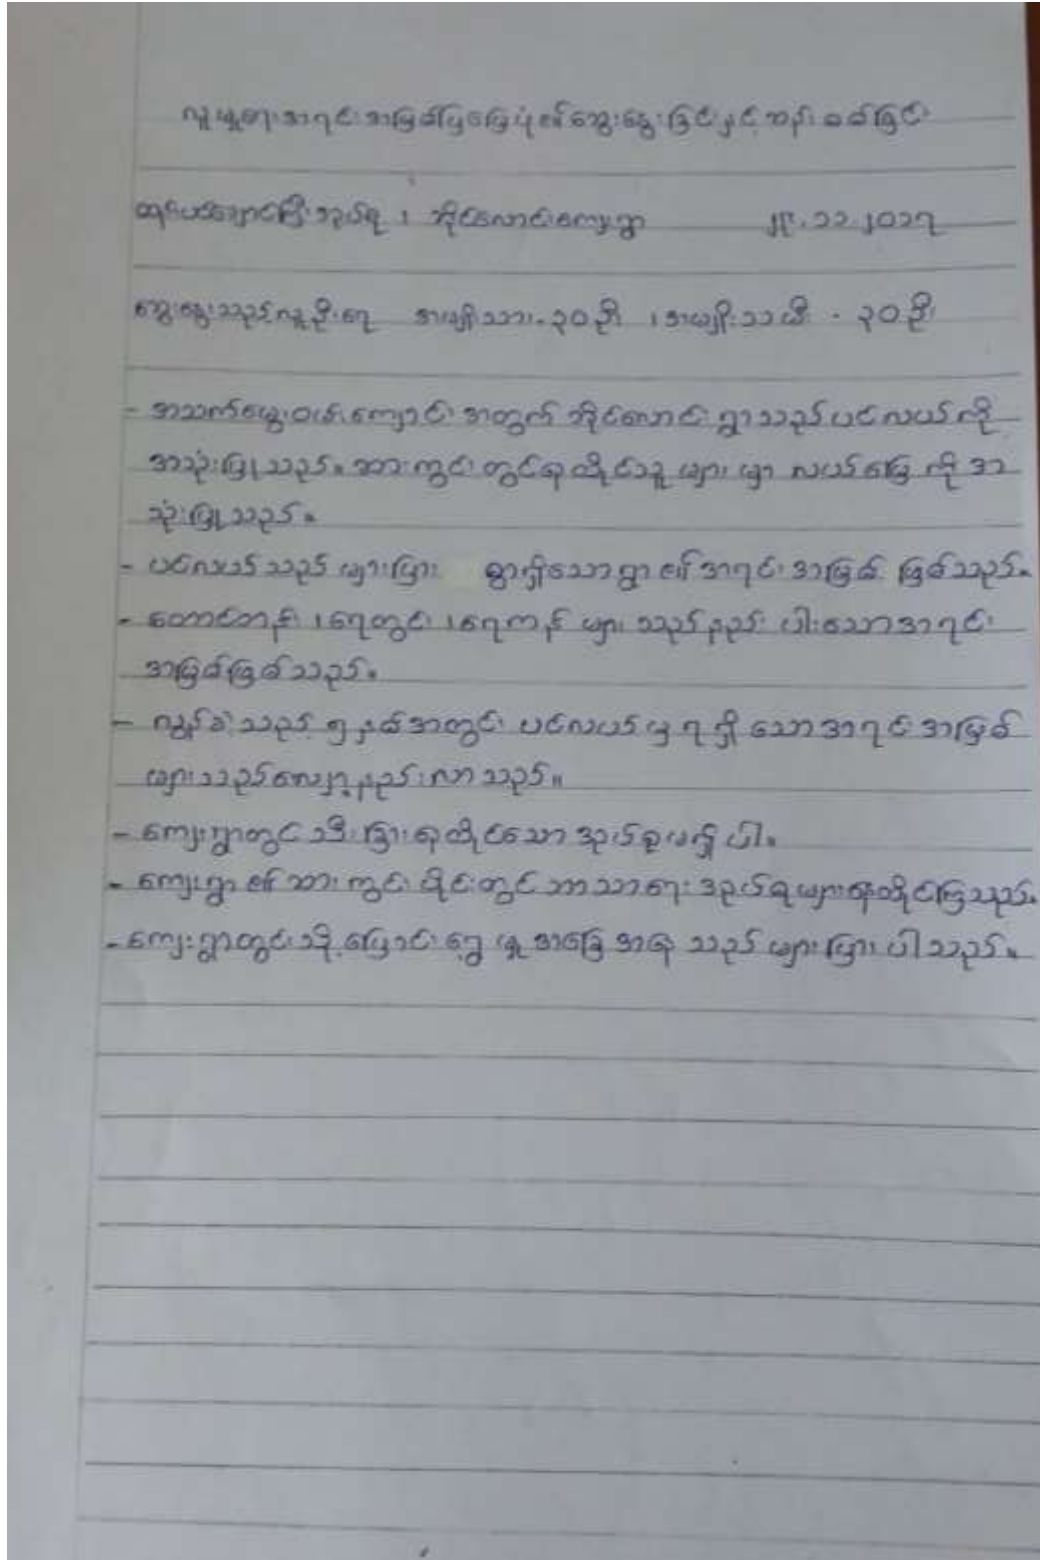 လူမှုရေးအရင်းအမြစ်ပြမြေပုံ၏ဆွေးနွေးခြင်းနှင့်ဆန်းစစ်ခြင်း
အုပ်စု ၊ အိုင်လောင်းကျေးရွာ ၂၉.၁၁.၂၀၁၇
ဆွေးနွေးသည့်လူဦးရေ အမျိုးသား-၃၀ဦး ၊အမျိုးသမီး - ၃၀ဦး
- အသက်မွေးဝမ်းကျောင်း အတွက် အိုင်လောင်းရွာသည် ပင်လယ်ကို
အသုံးပြုသည်။ အားကွင်းတွင်နေထိုင်သူ များမှာ လယ်မြေ ကို အ
သုံးပြုသည်။
- ပင်လယ် သည် များပြား စွာရှိသောရွာ ၏ အရင်း အမြစ် ဖြစ်သည်။
- တောင်တန်း ၊ရေတွင်း ၊ရေကန် များ သည်နည်း ပါးသောအရင်း
အမြစ်ဖြစ်သည်။
- လွန်ခဲ့သည့် ၅နှစ်အတွင်း ပင်လယ်မှ ရရှိ သောအရင်းအမြစ်
များသည်လျော့နည်းလာသည်။
- ကျေးရွာတွင် သီးခြားနေထိုင်သော အုပ်စုမရှိပါ။
- ကျေးရွာ ၏ အားကွင်း ပိုင်းတွင် ဘာသာရေး အုပ်စုများနေထိုင်ကြသည်။
- ကျေးရွာတွင်းသို့ ပြောင်းရွှေ့မှု အခြေအနေ သည် များပြားပါသည်။